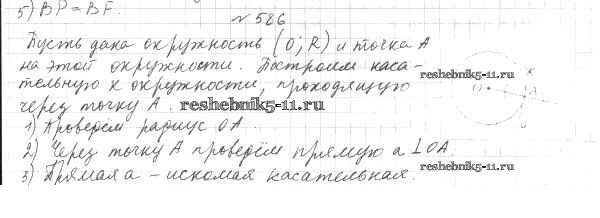 5) BP = BF.
№ 586
Пусть дана окружность (O; R) и точка A
на этой окружности. Построим каса-
тельную к окружности, проходящую
через точку A. reshebnik5-11.ru
1) Проведём радиус OA.
2) Через точку A проведём прямую a ⊥ OA.
3) Прямая a – искомая касательная.
O A
reshebnik5-11.ru
reshebnik5-11.ru